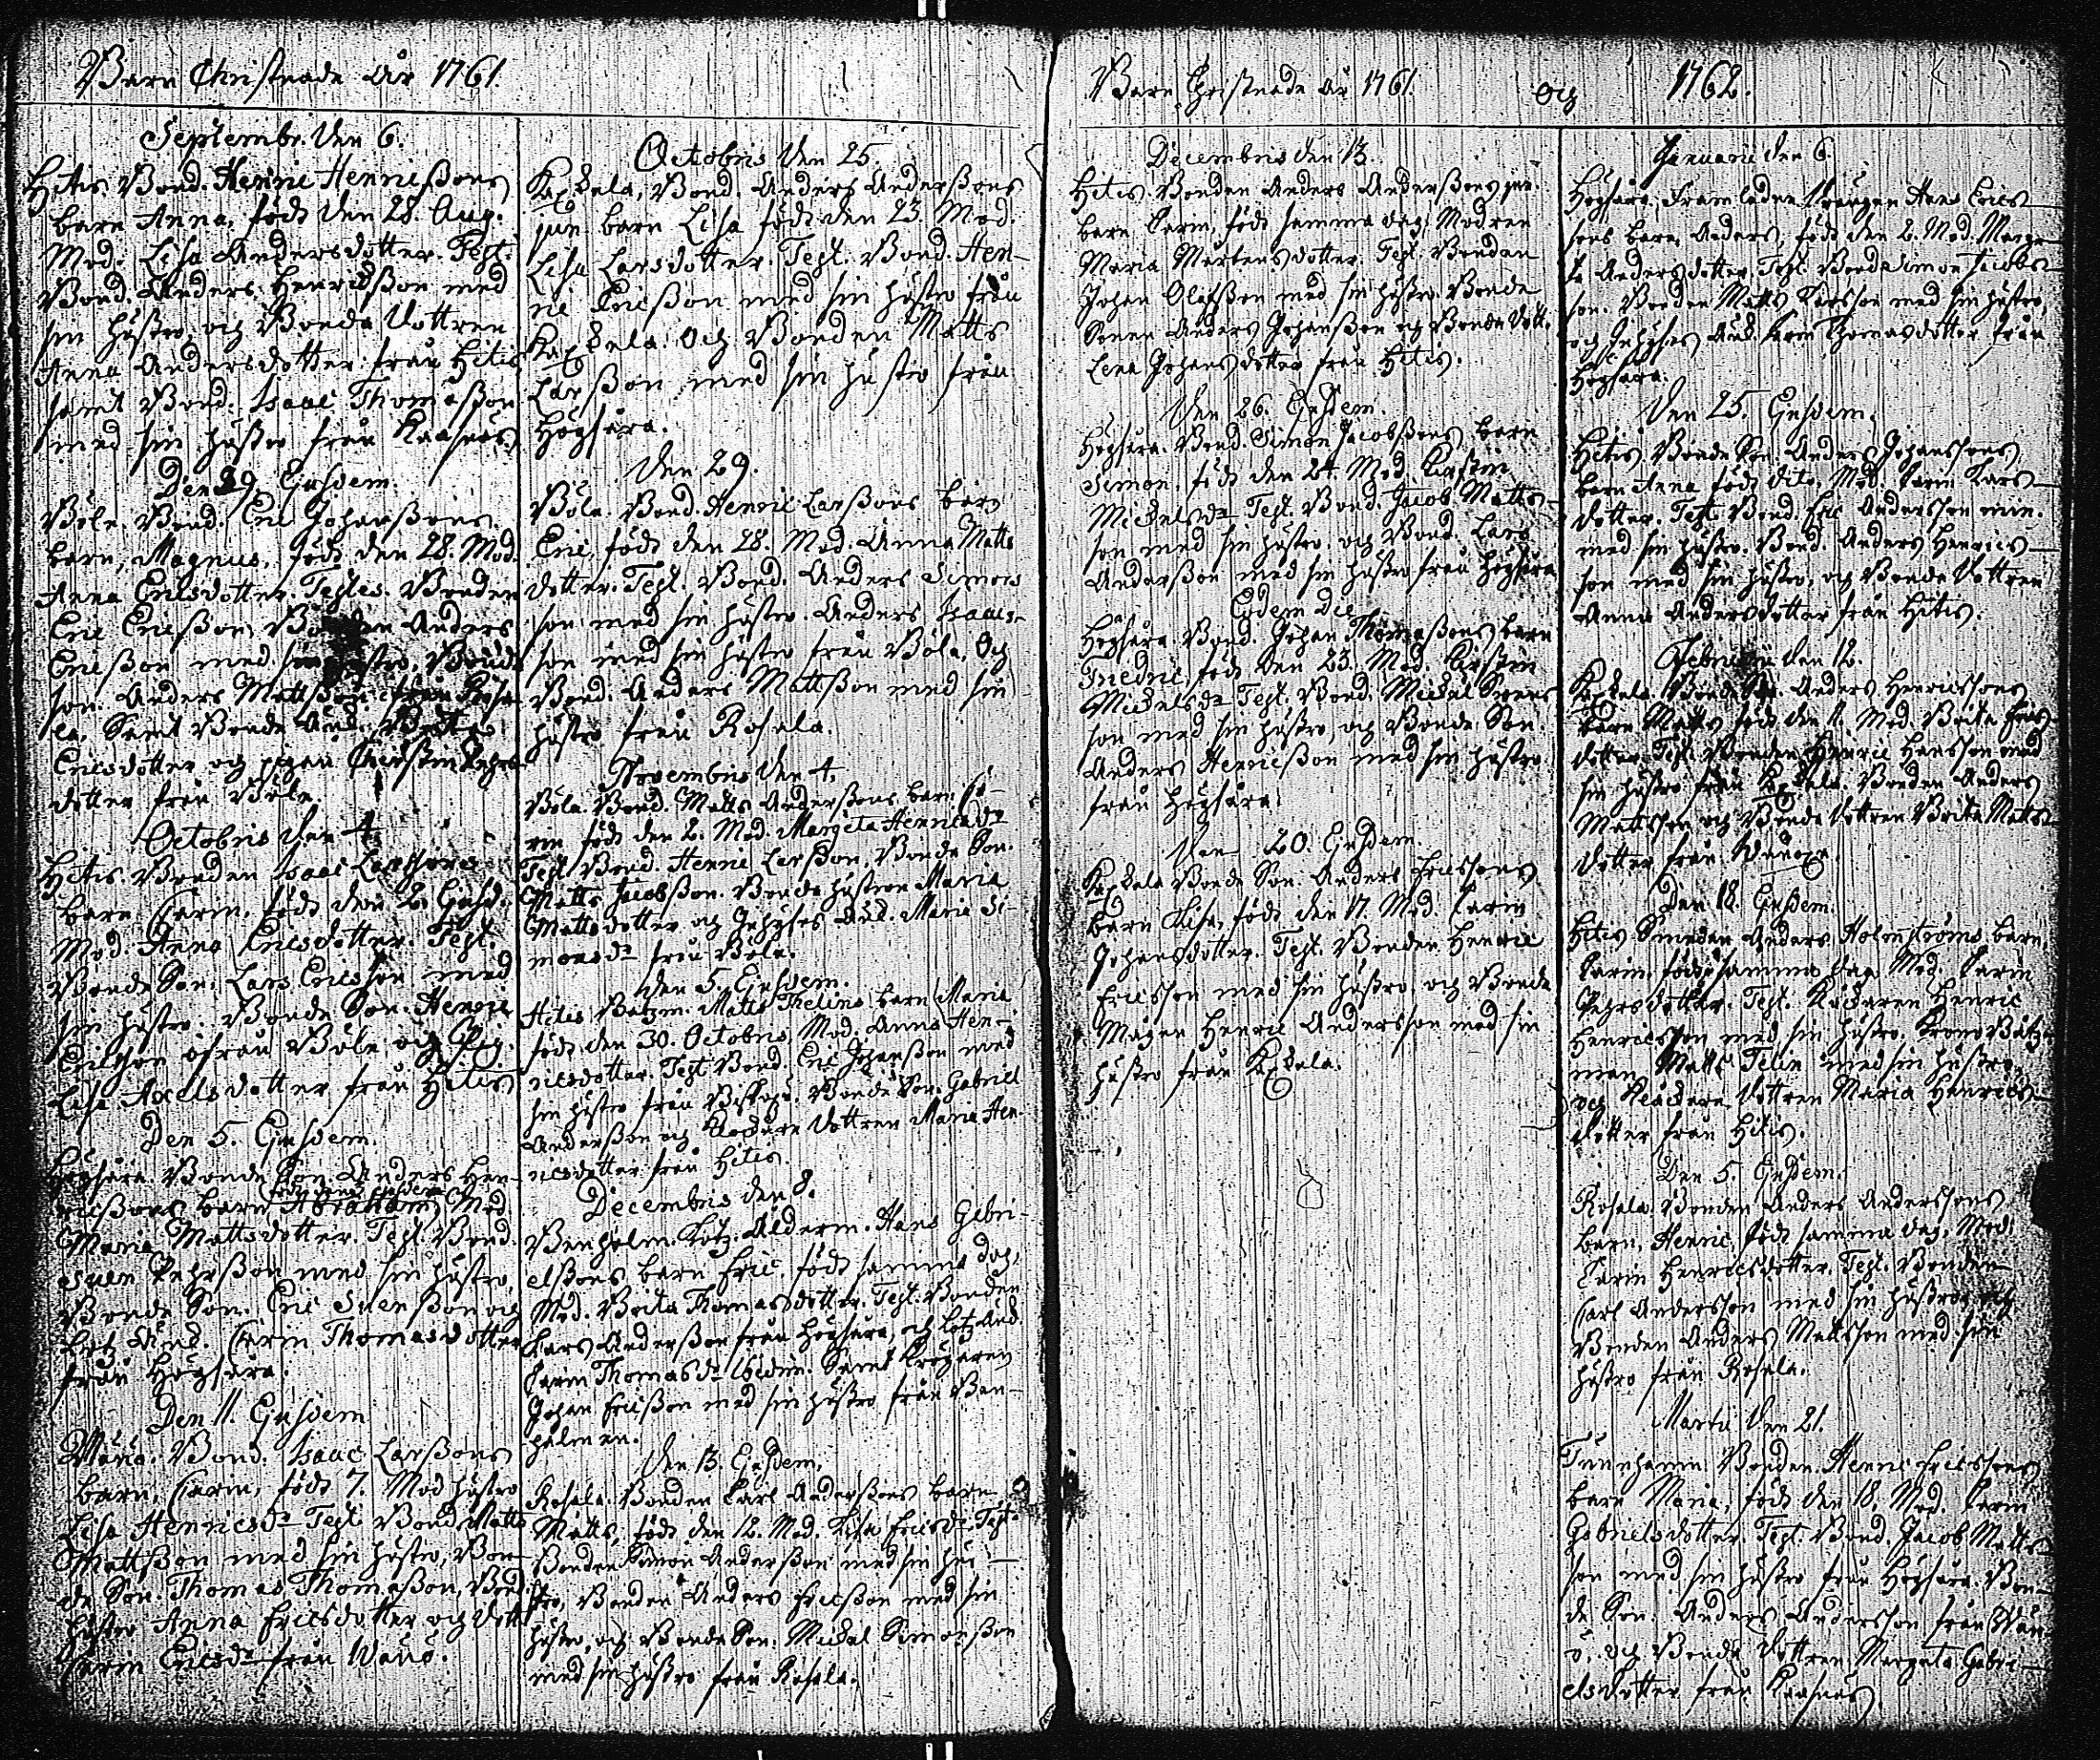 Barn Christnade år 1761.
Septembr. den 6.
Hitis. Bond. Henric Henricßons
barn Anna, född den 28. Aug.
Mod. Lisa Andersdotter. Test.
Bond. Anders Henricßon med
sin hustro, och Bonde dottren
Anna Andersdotter från Hitis
samt Bond. Isaac Thomaßon
med sin hustro från Kaasnäs.
Den 29. Ejusdem.
Böle. Bond. Eric Johanßons
barn, Magnus, född den 28. Mod.
Anna Ericsdotter. Testes. Bonden
Eric Ericßon, Bonden Anders
Ericßon med sin hustro, Bonde
son. Anders Mattßon från Rosa-
la, Samt Bonde
Ericsdotter och pigan
dotter från Böle.
Octobris den 4.
Hitis. Bonden Isaac Larssons
barn Carin, född den 2. Ejusd.
Mod. Anna Ericsdotter. Test.
Bonde Son. Lars Ericsson med
sin hustro. Bonde Son. Henric
Ericsson från Böle och Pig.
Lisa Axelsdotter från Hitis
Den 5. Ejusdem.
Högsåra. Bonde Son Anders Hen-
ricßons barn Abraham, Mod.
Maria Mattsdotter. Test. Bond.
Suen Pehrßon med sin hustro,
Bonde Son. Eric Suenßon och
Carin Thomasdotter
från Högsåra.
Den 11. Ejusdem
Wänö. Bond. Isaac Larßons
barn, Carin, född 7. Mod hustro
Lisa Henricsdr Test. Bond Matts
Mattßon med sin hustro, Bon-
de Son. Thomas Thomaßon, Bond.
hustro Anna Ericsdotter och dott
Carin Ericsdr från Wänö.
Octobris den 25.
Kaxkela, Bond. Anders Anderßons
jun barn Lisa född den 23 Mod.
Lisa Larsdotter. Test. Bond. Hen-
ric Ericßon med sin hustro från
Kaxkela. Och Bonden Matts
Larßon med sin hustro från
Högsåra.
Den 29.
Böle. Bond. Henric Larßons barn
Eric, född den 28. Mod. Anna Matts
dotter. Test. Bond. Anders Simons
son med sin hustro. Anders Isaacs-
son med sin hustro från Böle, Och
Bond. Anders Mattßon med sin
hustro från Rosala.
Novembris den 4.
Böle. Bond. Matts Anderßons barn Ca-
rin född den 2. Mod. Margeta Henricsdr
Test Bond. Henric Larßon, Bonde Son.
Matts Jacobßon. Bonde hustron Maria
Mattsdotter och Maria Si-
monsdr från Böle.
Den 5. Ejusdem.
Hitis Båtzm. Matts Thelins barn Maria
född den 30. Octobris Mod. Anna Hen-
ricsdotter. Test. Bond. Eric Johanßon med
sin hustro från Biskops. Bonde Son. Gabriel
Anderßon och Klockare dottren Maria Hen
ricsdotter från Hitis.
Decembris den 8.
Benholm. Lotz. Ålderm. Hans Gabri-
elßons barn Eric, född samma dag,
Mod. Brita Thomasdotter. Test. Bonden
Lars Anderßon från Högsåra, och
Carin Thomasdr ibidem. Samt Krögaren
Johan Ericßon med sin hustro från Ben-
holmen.
Den 13. Ejusdem.
Rosala. Bonden Carl Anderßons barn
Matts, född den 12. Mod. Lisa Ericsdr. Test.
Bonden Simon Anderßon med sin hus-
tro, Bonden Anders Ericßon med sin
hustro, och Bonde Son. Michel Simonßon
med sin hustro från Rosala.
Barn Christnade år 1761. Och 1762.
Decembris den 13.
Hitis. Bonden Anders Anderßons jun.
barn Carin, född samma dag, Modren
Maria Mårtensdotter. Test. Bondan
Johan Olofßon med sin hustro. Bonde
Sonen Anders Johanßon och Bonde dott.
Lena Johansdotter från Hitis.
Den 26. Ejusdem.
Högsåra. Bond. Simon Jacobßons barn
Simon, född den 24. Mod. Kirstin
Michelsdr Test. Bond. Jacob Matts-
son med sin hustro, och Bond. Lars
Anderßon med sin hustro från Högsåra
Eodem Die
Högsåra. Bond. Johan Thomaßons barn
Friedric, född den 23. Mod. Kirstin
Michelsdr Test. Bond. Michel Suens
son med sin hustro, och Bonde Son
Anders Henricßon med sin hustro
från Högsåra.
Den 20. Ejusdem.
Kaxkela Bonde Son. Anders Ericssons
barn Lisa, född den 17. Mod. Carin
Johansdotter. Test. Bonden Henric
Ericsson med sin hustro, och Bonde
Mågen Henric Andersson med sin
hustro från Kaxkela.
Januarii den 6.
Högsåra, Hans Erics-
sons barn Anders, född den 2. Mod. Marge-
ta Andersdotter. Test. Bonde Simon Jacobs-
son. Bonden Matts Larsson med sin hustro,
och Carin Thomasdotter från
Högsåra.
Den 25. Ejusdem.
Hitis. Bonde Son. Anders Johanssons
barn Anna född dito, Mod. Carin Lars-
dotter. Test. Bond. Eric Andersson min.
med sin hustro. Bond. Anders Henrics-
son med sin hustro, och Bonde dottren
Anna Andersdotter från Hitis.
Februarii den 12.
Kaxkela. Bonde Son. Anders Henricssons
barn Matts född den 11. Mod. Brita Erics
dotter. Test. Bonden Henric Hansson med
sin hustro från Kaxkela. Bonden Anders
Mattsson och Bonde dottren Brita Matts-
dotter från
Den 18. Ejusdem.
Hitis Smeden Anders Holmströms barn,
Carin, född samma dag Mod. Carin
Pehrsdotter. Test. Klåckaren Henric
Henricsson med sin hustro. Krono Båtz-
man Matts Telin med sin hustro,
och Klåckare dottren Maria Henrics-
dotter från Hitis.
Den 5. Ejusdem.
Rosala. Bonden Anders Anderssons
barn, Henric, född samma dag, Mod.
Carin Henricsdotter. Test. Bonden
Carl Andersson med sin hustro, och
Bonden Anders Mattsson med sin
hustro från Rosala.
Martii den 21.
Tunnhamn. Bonden Henric Ericssons
barn Maria, född den 18. Mod. Carin
Gabrielsdotter. Test. Bond. Jacob Matts-
son med sin hustro från Högsåra. Bon-
de Son. Anders Andersson från Wän-
ö, och Bonde dottren Margeta Gabri-
elsdotter från Kaasnäs.